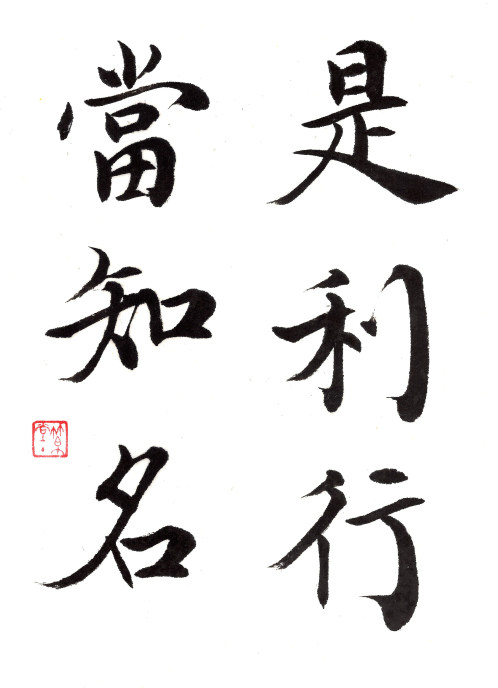 是利行
當知名